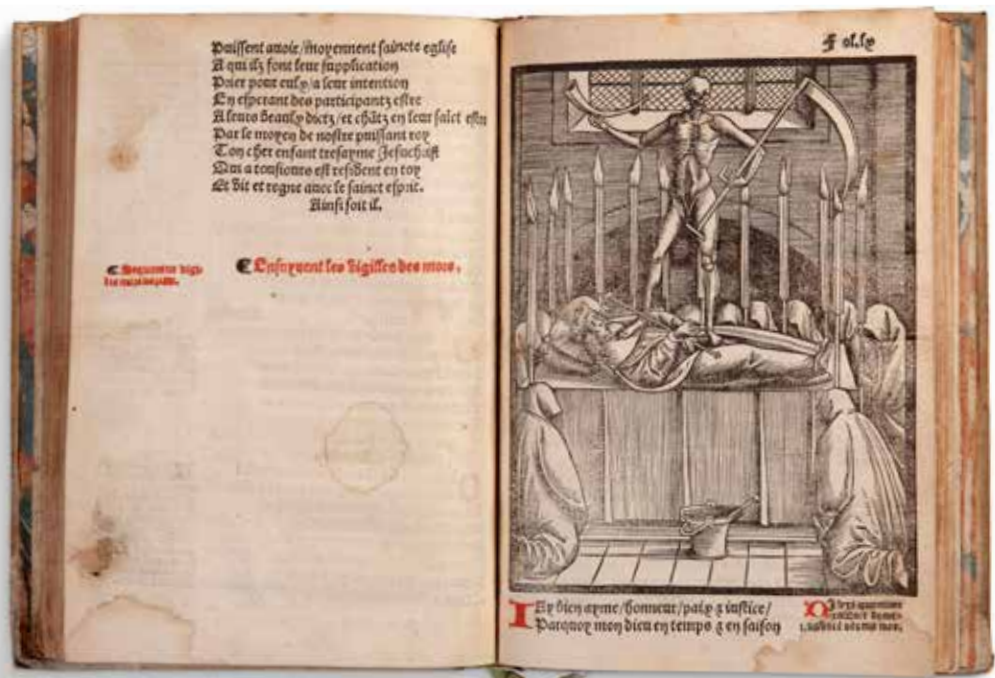 Puissent avoir/moyennent saincte eglise
A qui ilz font leur supplication
Prier pour eulx/a leur intention
En esperant des participantz estre
A leurs beaulx dictz/et chātz en leur faict estre
Par le moyen de nostre puissant roy
Ton cher enfant tresayme Jesuchrist
Qui a tousiours est resident en toy
Et vit et regne avec le sainct esprit.
Ainsi soit il.
Sequuntur vigi
lie mortuorum.
Ensuyvent les vigilles des mors.
Fol.lx
IEy bien ayme/honneur/paix & iustice/
Parquoy mon dieu en temps & en saison
Dilexi quoniam
exaudiet domi-